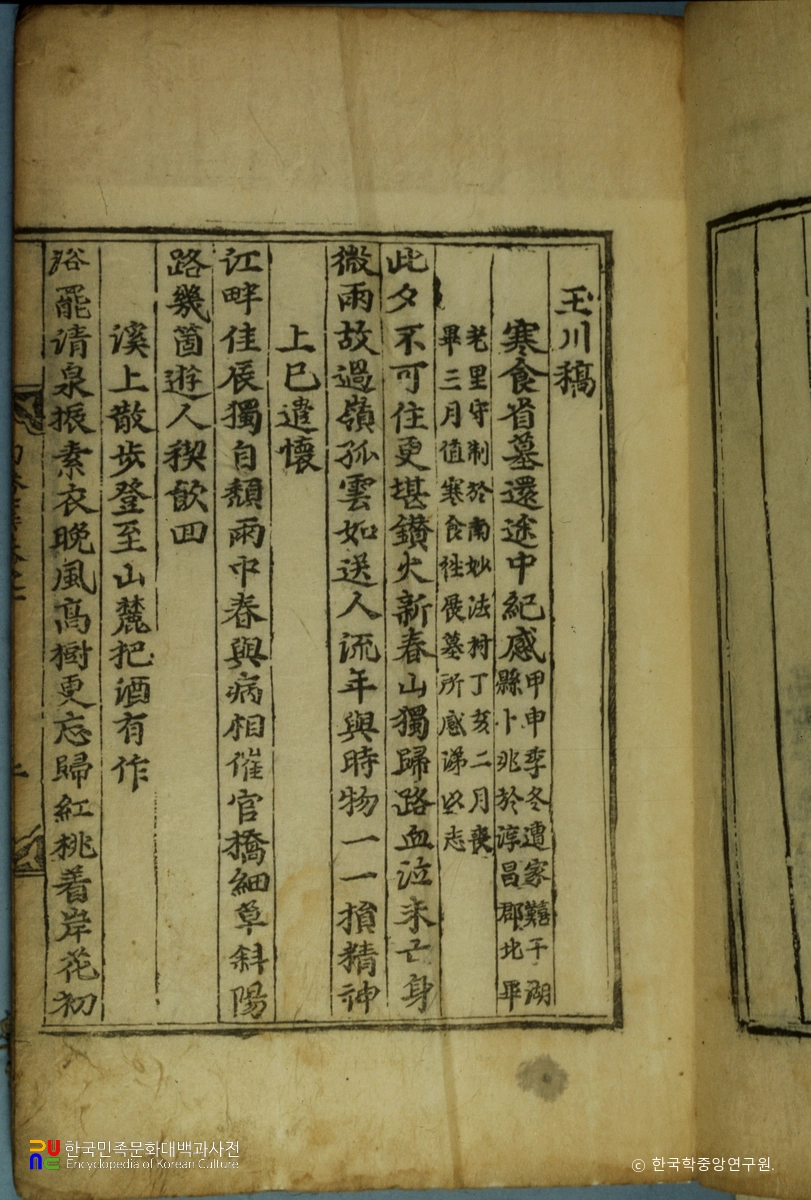 玉川稿
寒食省墓還途中紀感 甲申季冬遭家難于湖
縣卜兆於淳昌郡北畢
老里守制於南妙法村丁亥二月喪
畢三月值寒食往展墓所感涕以志
此夕不可住更堪鑚火新春山獨歸路血泣未亡身
微雨故過嶺孤雲如送人流年與時物一一損精神
上巳遣懷
江畔佳辰獨自頹雨中春與病相催官橋細草斜陽
路幾箇遊人稧飮回
溪上散步登至山麓把酒有作
浴罷清泉振素衣晩風高樹更忘歸紅桃着岸花初
한국민족문화대백과사전
Encyclopedia of Korean Culture
© 한국학중앙연구원.